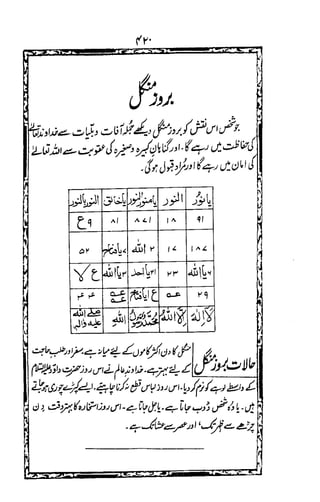 ۴۲۰
بروز منگل
جو شخص اس نقش کو بروز منگل دیکھے جملہ آفات و بلیّات سے خداوند تعالےٰ
کی حفاظت میں رہے گا۔ اور گناہانِ کبیرہ و صغیرہ کی عقوبت سے اللہ تعالےٰ
کی امان میں رہے گا اور مراد قبول ہوگی۔
یا نورُ النور یا منور النور یا خالق النور یا النور
۹۱ ۱۸ ۸۷۱ ۸۱ ۹ ع
۱۸۷ ۱۷ ۲ اللہ ۷ یا فتاح ۵۲
۶ یا اللہ ۲۳ ۲۱ یا احد ۳ یا اللہ ع لا
۲۹ ع یا فتاح
لا الٰہ الا اللہ محمد رسول اللہ صلے اللہ علیہ وآلہ
حالات بروز منگل
منگل کا دن اکثر کاموں کے لیئے میانہ ہے۔ سفر اور طلب حاجت
کے لیئے بہتر ہے۔ خداوند عالم نے اس روز حضرت داؤد علیہ السلام
کے واسطے لوہے کو نرم کر دیا۔ اس روز لباس قطع نہ کرنا چاہیئے۔ ایسے کپڑے چوری ہو جاتے
ہیں۔ یا وہ شخص ڈوب جاتا ہے۔ یا جل جاتا ہے۔ اس روز استخارہ کا بہتر وقت دن
چڑھے سے ظہر تک اور عصر سے عشا تک ہے۔